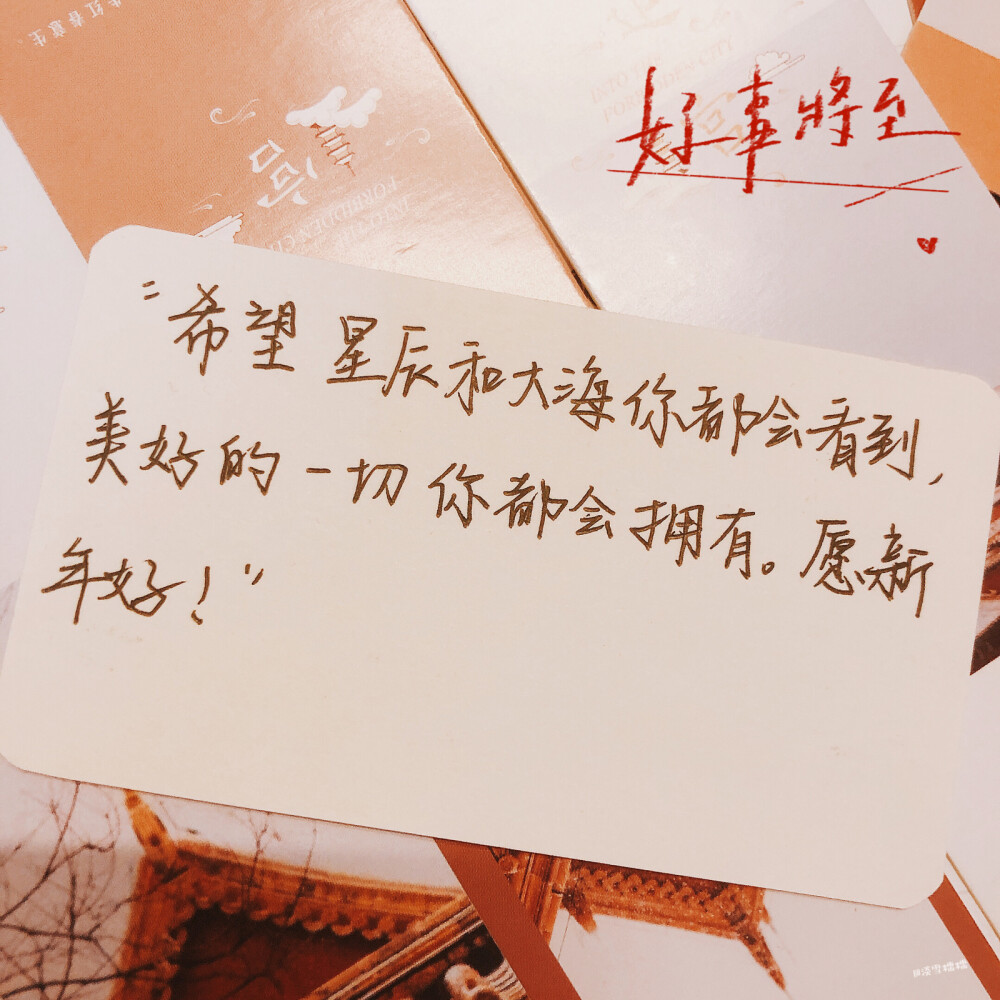 好事將至
"希望星辰和大海你都会看到,
美好的一切你都会拥有。愿新
年好!"
INTO THE
FORBIDDEN CITY